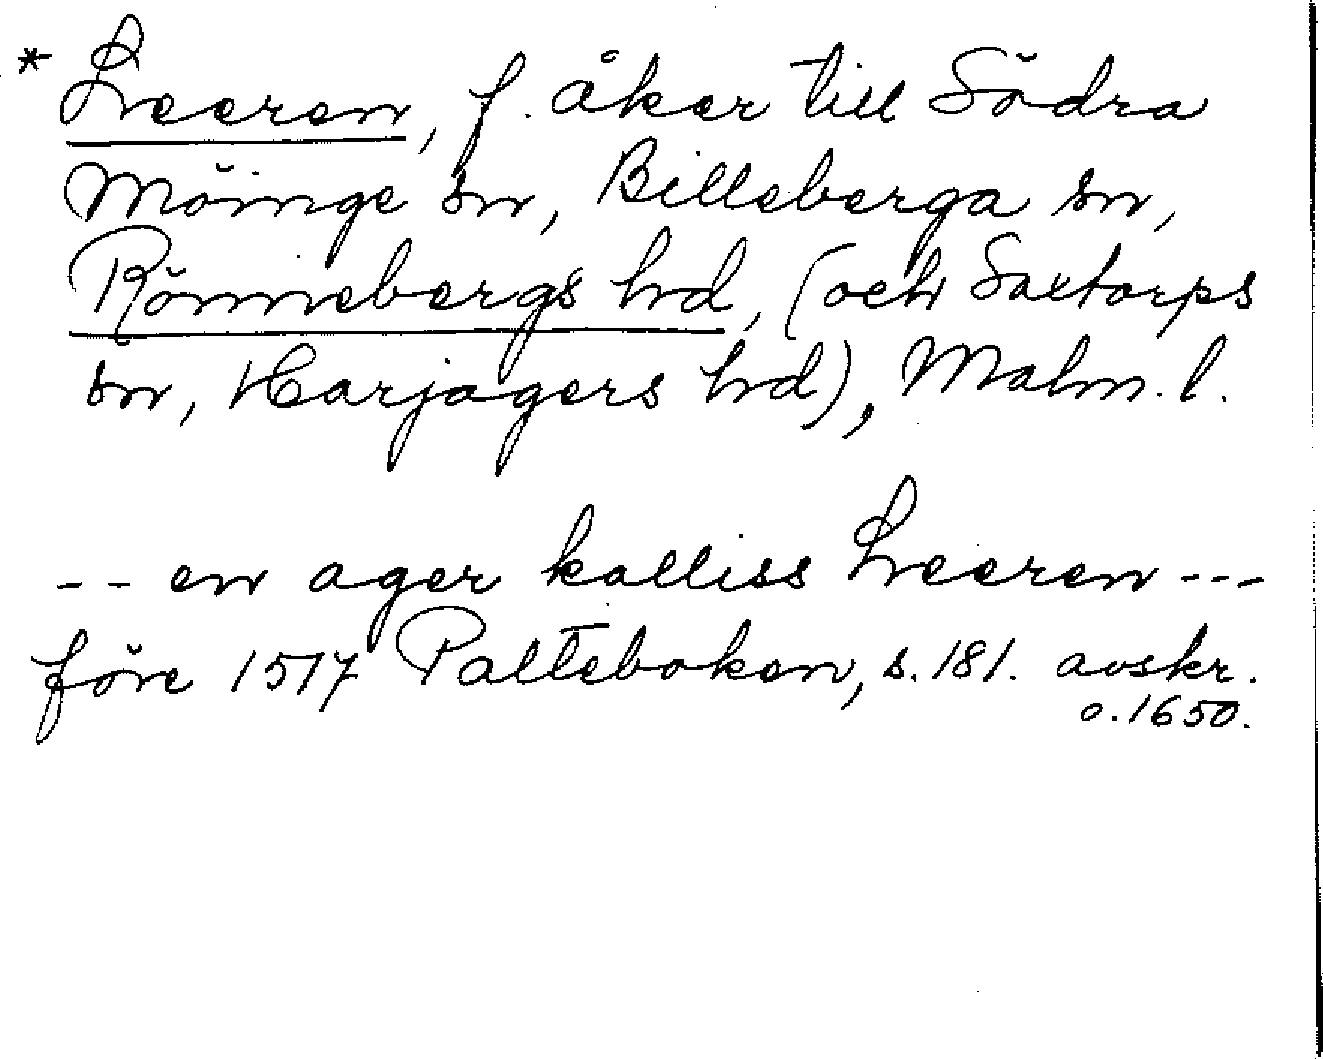 * Leeren, f. åker till Södra
Möinge sn, Billeberga sn,
Rönnebergs hd, (och Saxtorps
sn, Harjagers hd), Malm. l.
-- en ager kalliss Leeren ---
före 1517 Palteboken, s. 181. avskr.
o. 1650.